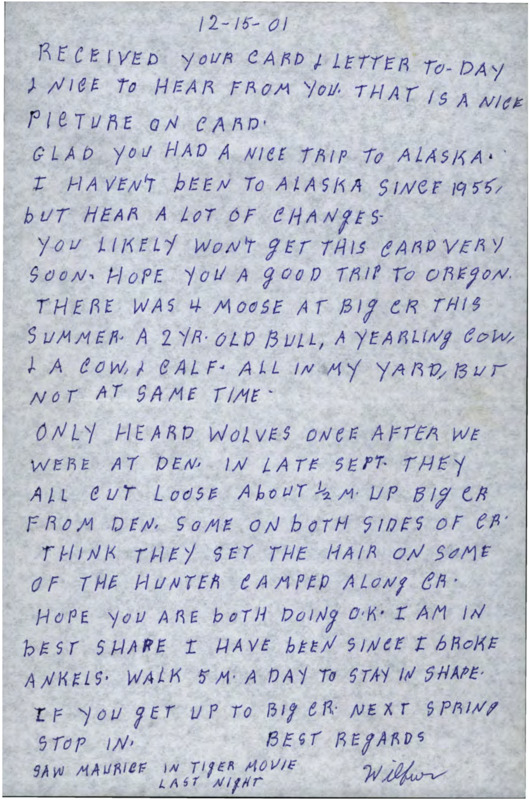 12-15-01
RECEIVED YOUR CARD & LETTER TO-DAY
& NICE TO HEAR FROM YOU. THAT IS A NICE
PICTURE ON CARD.
GLAD YOU HAD A NICE TRIP TO ALASKA.
I HAVEN'T BEEN TO ALASKA SINCE 1955,
BUT HEAR A LOT OF CHANGES.
YOU LIKELY WON'T GET THIS CARD VERY
SOON. HOPE YOU A GOOD TRIP TO OREGON.
THERE WAS 4 MOOSE AT BIG CR THIS
SUMMER. A 2 YR. OLD BULL, A YEARLING COW,
& A COW, & CALF. ALL IN MY YARD, BUT
NOT AT SAME TIME.
ONLY HEARD WOLVES ONCE AFTER WE
WERE AT DEN. IN LATE SEPT. THEY
ALL CUT LOOSE ABOUT ½ M. UP BIG CR
FROM DEN. SOME ON BOTH SIDES OF CR.
THINK THEY SET THE HAIR ON SOME
OF THE HUNTER CAMPED ALONG CR.
HOPE YOU ARE BOTH DOING O.K. I AM IN
BEST SHAPE I HAVE BEEN SINCE I BROKE
ANKELS. WALK 5 M. A DAY TO STAY IN SHAPE.
IF YOU GET UP TO BIG CR. NEXT SPRING
STOP IN. BEST REGARDS
SAW MAURICE IN TIGER MOVIE
LAST NIGHT
Wilbur